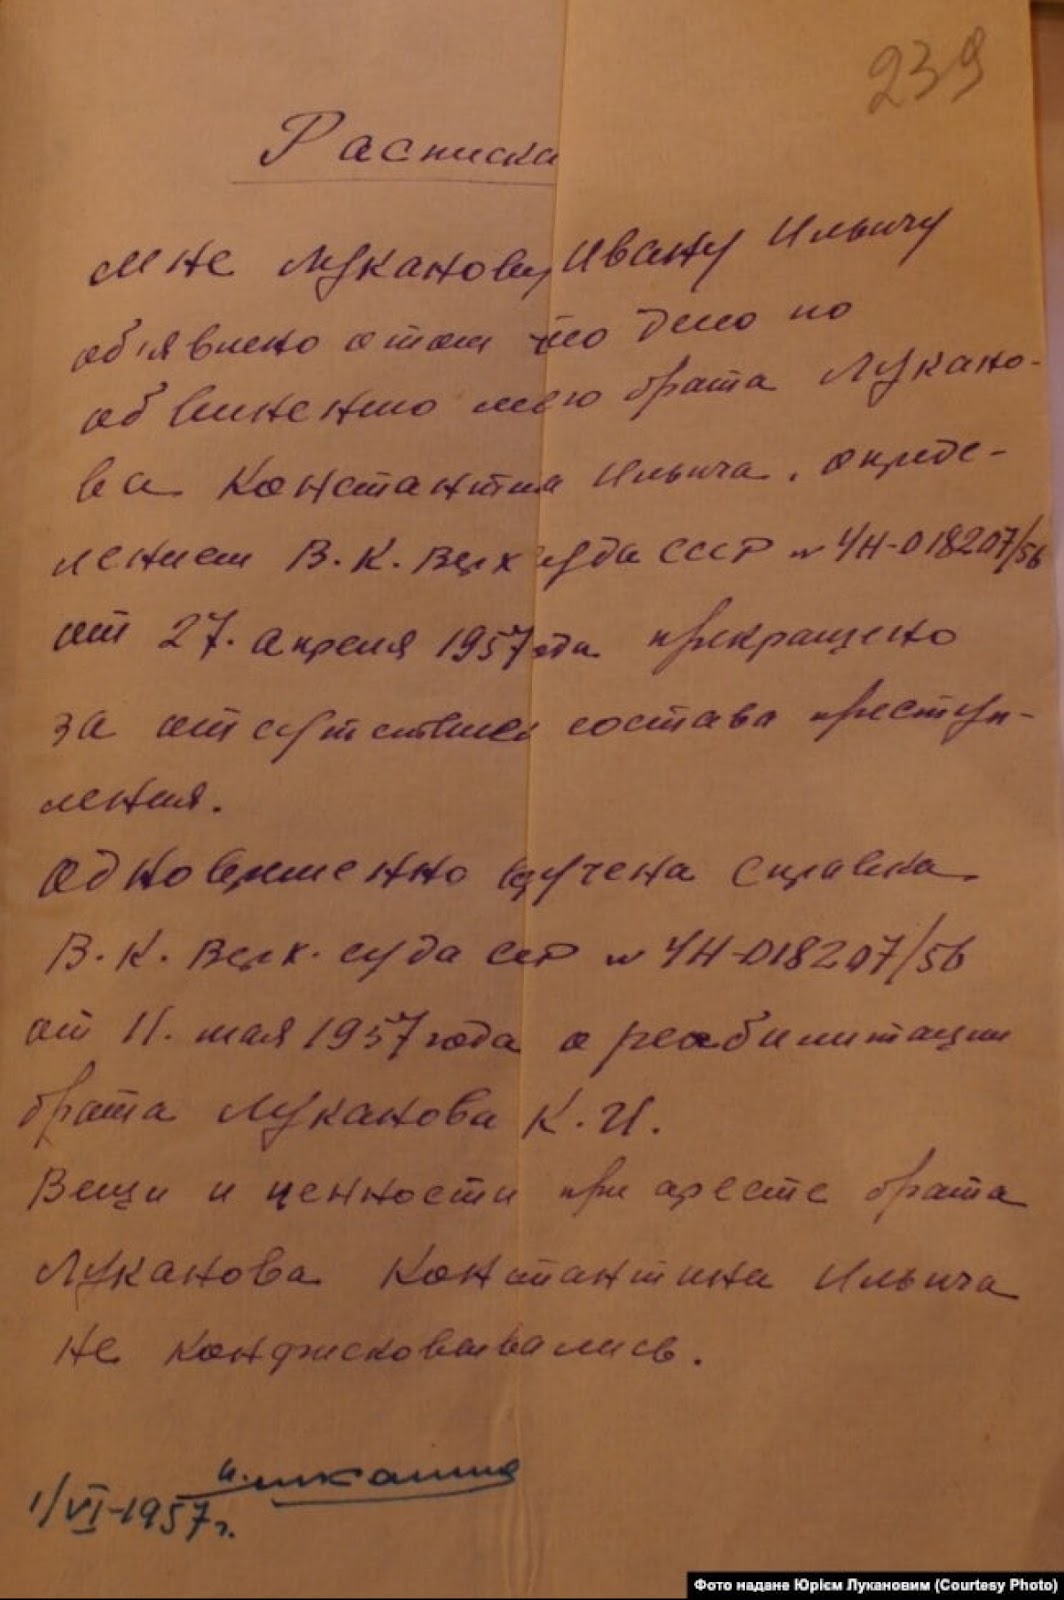 239
Расписка
Мне Луканову Ивану Ильичу
об'явлено о том что дело по
обвинению мего брата Лукано-
ва Константина Ильича, опреде-
лением В. К. Верх суда СССР № 4Н-018207/56
от 27. апреля 1957 года прекращено
за отсутствием состава преступ-
ления.
Одновременно вручена справка
В. К. Верх. суда ССР № 4Н-018207/56
от 11. мая 1957 года о реабилитации
брата Луканова К. И.
Вещи и ценности при аресте брата
Луканова Константина Ильича
не конфисковывались.
1/VI-1957г.
Фото надане Юрієм Лукановим (Courtesy Photo)